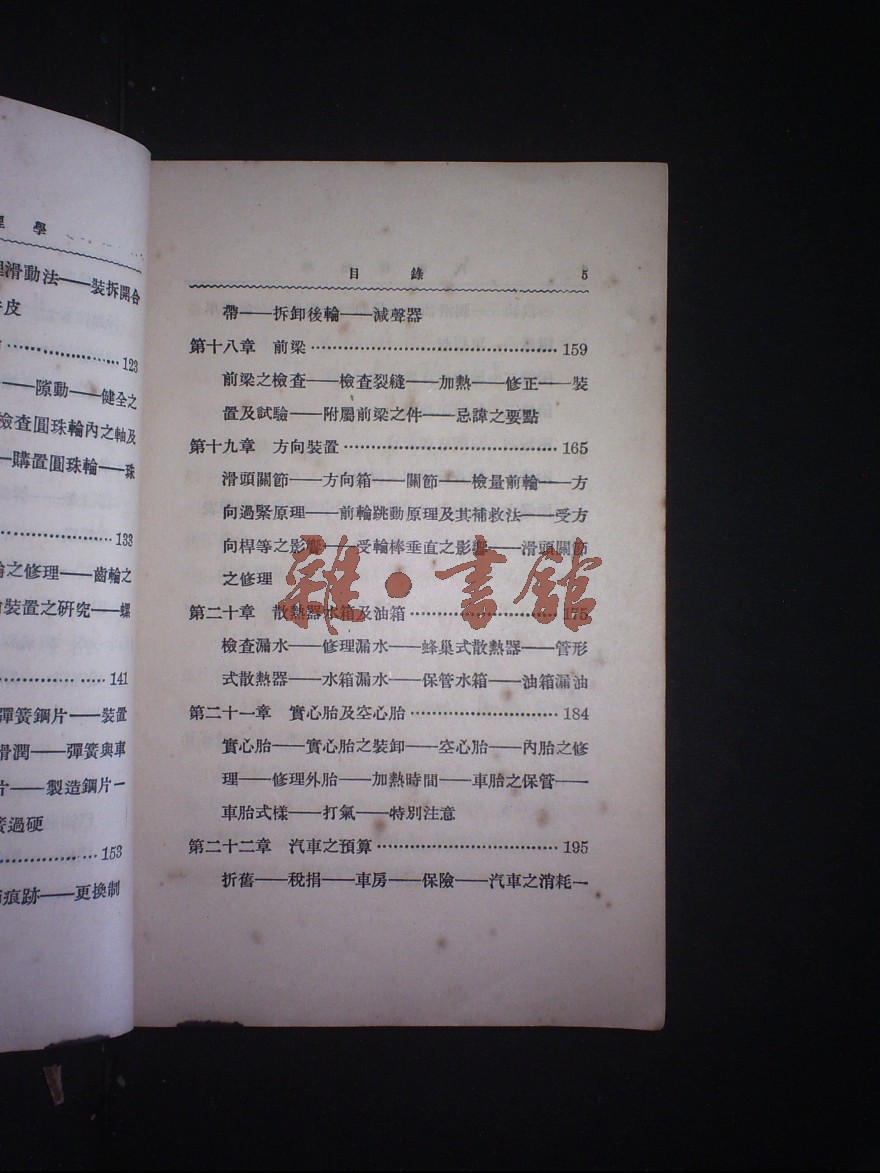 理學
理滑動法——裝拆開合
皮
123
——隙動——健全之
檢查圓珠輪內之軸及
——購置圓珠輪——珠
133
之修理——齒輪之
裝置之硏究——螺
141
彈簧鋼片——裝置
滑潤——彈簧與車
片——製造鋼片—
簧過硬
153
痕跡——更換制
目錄 5
帶——拆卸後輪——減聲器
第十八章 前梁 159
前梁之檢查——檢查裂縫——加熱——修正——裝
置及試驗——附屬前梁之件——忌諱之要點
第十九章 方向裝置 165
滑頭關節——方向箱——關節——檢量前輪——方
向過緊原理——前輪跳動原理及其補救法——受方
向桿等之影響——受輪棒垂直之影響——滑頭關節
之修理
第二十章 散熱器水箱及油箱 175
檢查漏水——修理漏水——蜂巢式散熱器——管形
式散熱器——水箱漏水——保管水箱——油箱漏油
第二十一章 實心胎及空心胎 184
實心胎——實心胎之裝卸——空心胎——內胎之修
理——修理外胎——加熱時間——車胎之保管——
車胎式樣——打氣——特別注意
第二十二章 汽車之預算 195
折舊——稅捐——車房——保險——汽車之消耗—
雜·書館